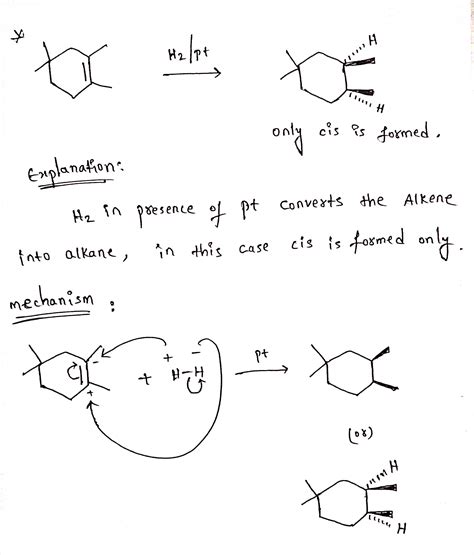 H2/pt
H
H
only cis is formed.
Explanation:
H2 in presence of pt converts the Alkene
into alkane, in this case cis is formed only.
mechanism :
+ −
− + + H-H pt
(or)
H
H